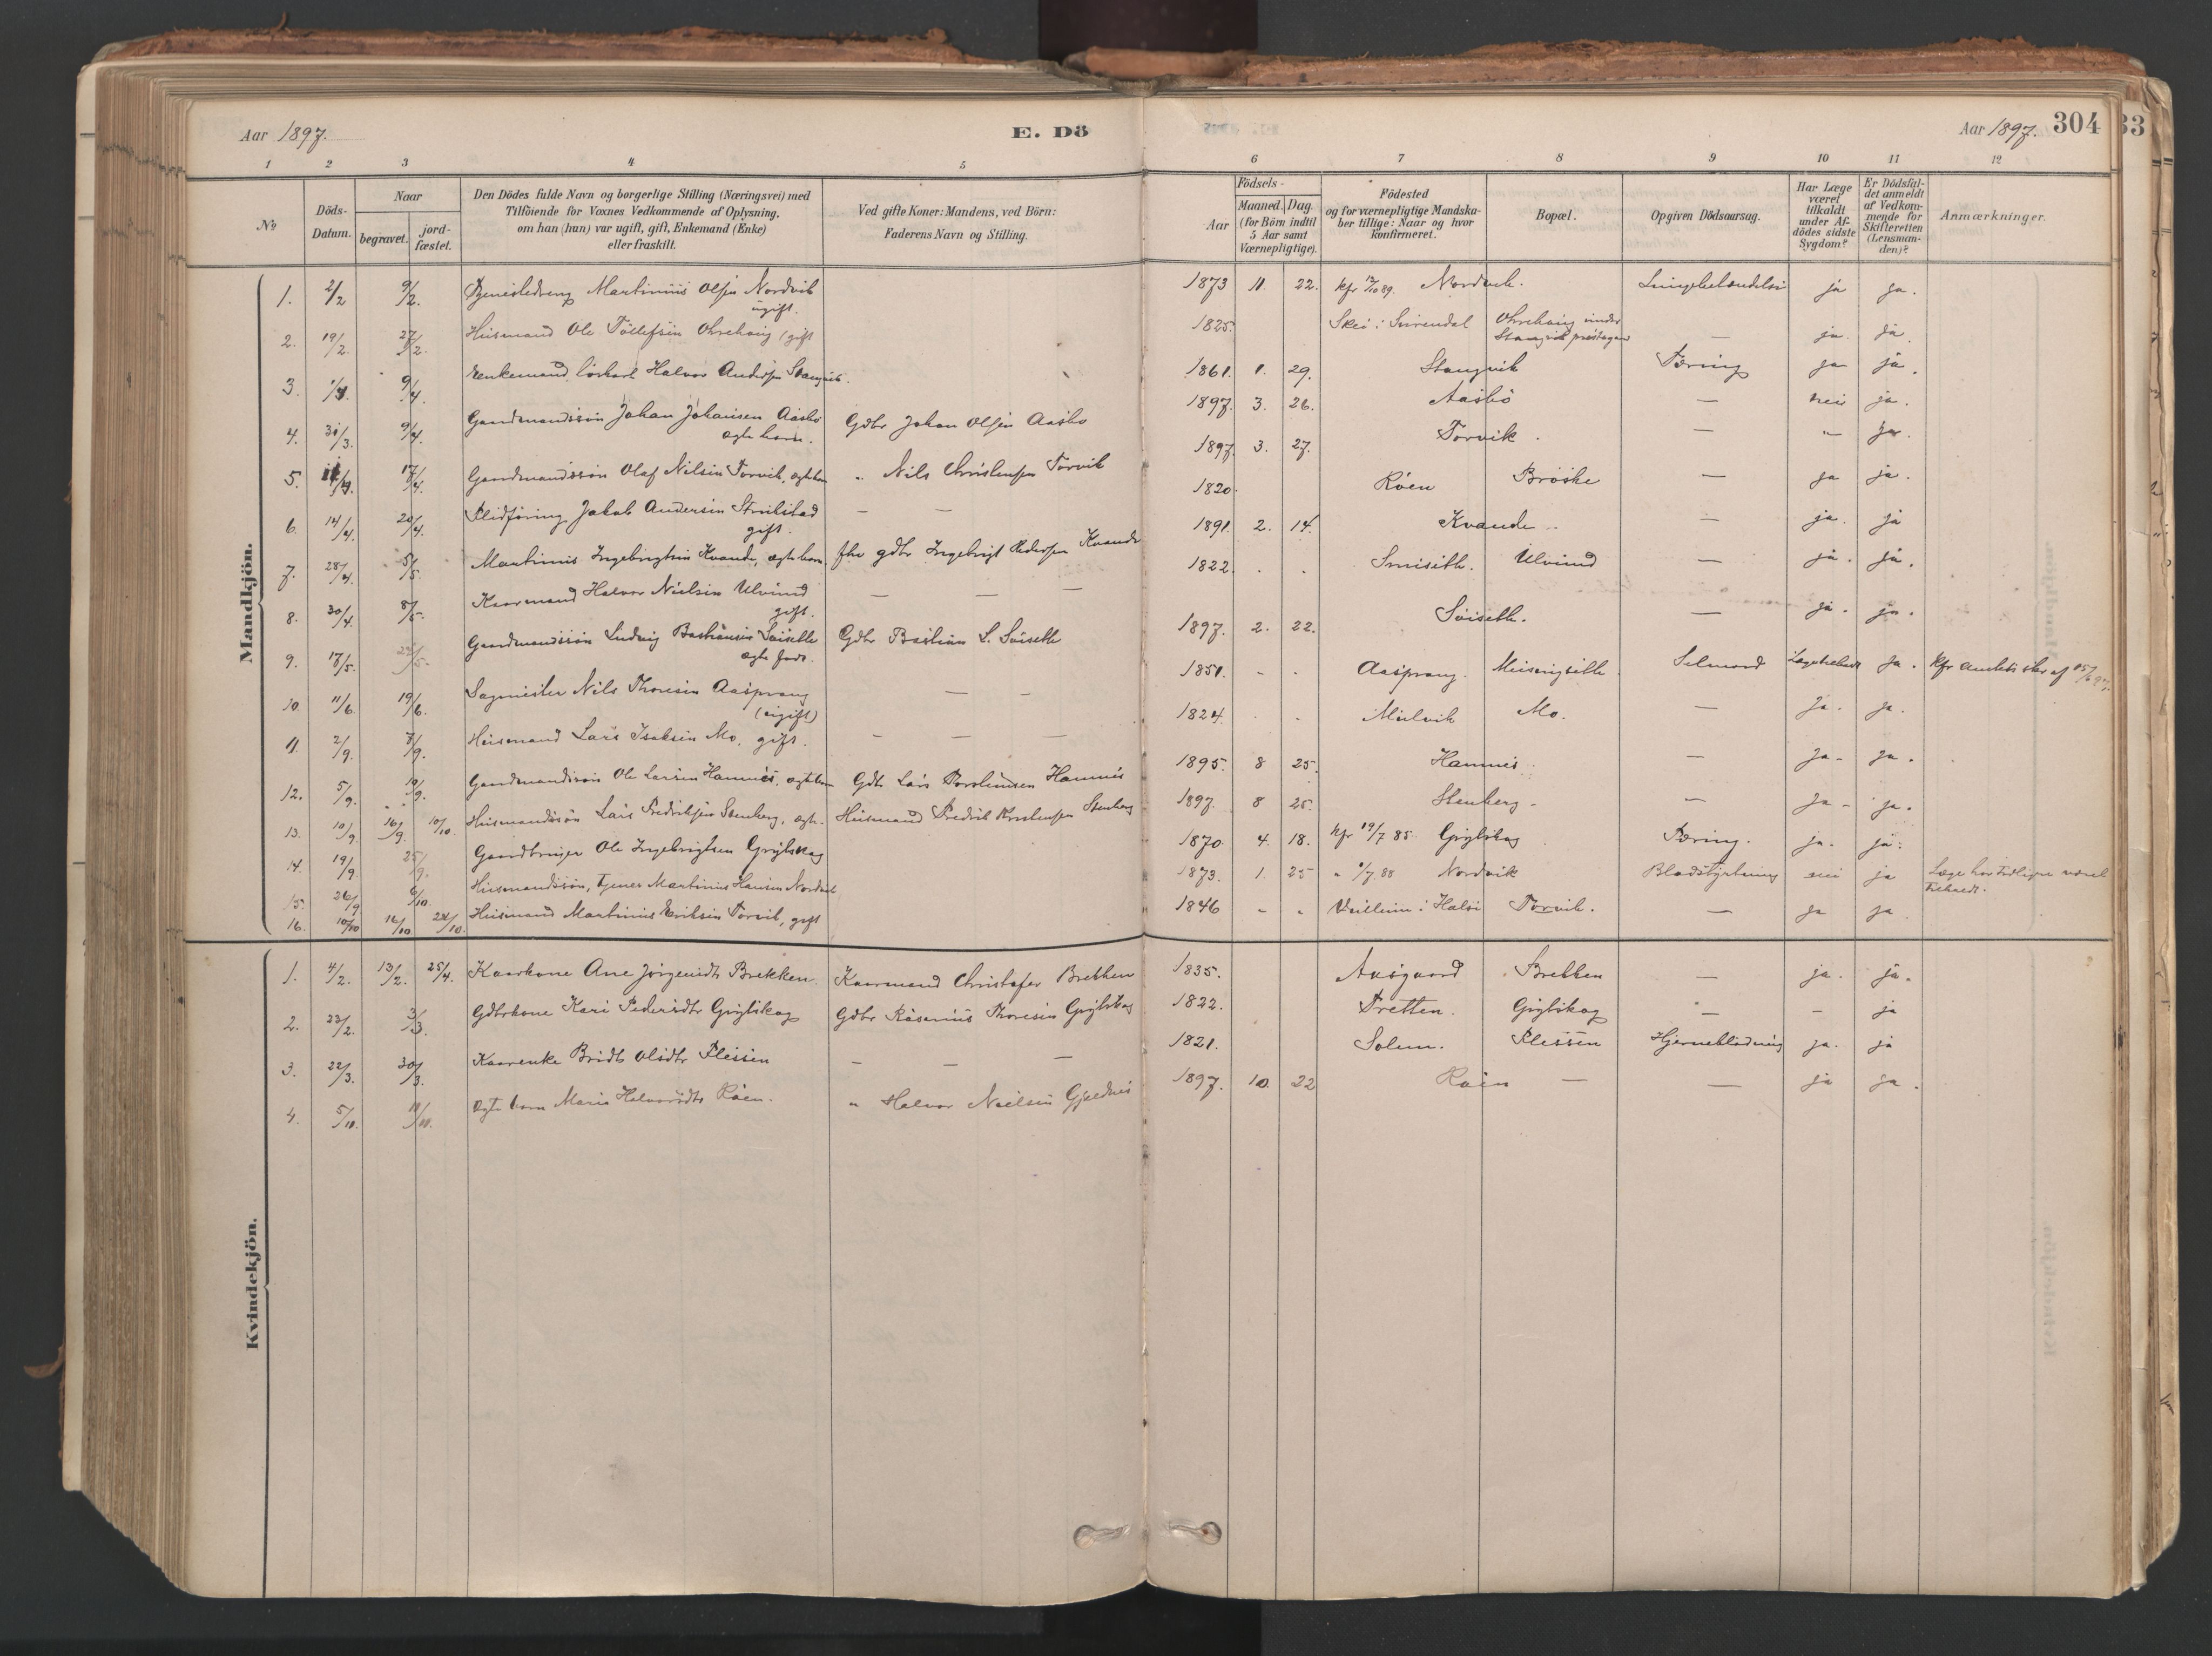 Aar 1897.
E. Dö
Aar 1897. 304
33
1 2 3 4 5 6 7 8 9 10 11 12
No
Döds-Datum.
Naar
begravet.
jord-fæstet.
Den Dödes fulde Navn og borgerlige Stilling (Næringsvei) med
Tilföiende for Voxnes Vedkommende af Oplysning,
om han (hun) var ugift, gift, Enkemand (Enke)
eller fraskilt.
Ved gifte Koner: Mandens, ved Börn:
Faderens Navn og Stilling.
Födsels-
Aar
Maaned. Dag.
(for Börn indtil
5 Aar samt
Værnepligtige).
Födested
og for værnepligtige Mandska-
ber tillige: Naar og hvor
konfirmeret.
Bopæl.
Opgiven Dödsaarsag.
Har Læge
været
tilkaldt
under Af-
dödes sidste
Sygdom?
Er Dödsfal-
det anmeldt
af Vedkom-
mende for
Skifteretten
(Lensman-
den)?
Anmærkninger.
Mandkjön.
1. 2/2 9/2. Tjenestedreng Martinus Olsen Nordvik ugift. 1873 11. 22. kfr 13/10 89. Nordvik. Lungebetændelse ja ja.
2. 19/2. 27/2. Husmand Ole Tollefsen Ohrehaug (gift 1825. Skei i Surendal Ohrehaug under Stangvik præstegaard — ja. ja.
3. 9/4. Enkemand, löskarl Halvor Andersen Stangvik. 1861. 1. 29. Stangvik Tæring ja ja.
4. 30/3. 9/4. Gaardmandssön Johan Johansen Aasbö ægte barn. Gdbr Johan Olsen Aasbö 1897. 3. 26. Aasbö — nei ja.
5. 17/4. Gaardmandssön Olaf Nilsen Torvik, ægte barn " Nils Christensen Torvik 1897. 3. 27. Torvik. — " ja.
6. 14/4. 20/4. Flidföring Jakob Andersen gift. — — 1820. Röen Bröske — ja ja.
7. 28/4. 5/5. Martinus Ingebrigtsen Kvande, ægte barn. fhv gdbr Ingebrigt Pedersen Kvande 1891. 2. 14. Kvande — ja. ja
8. 30/4. 8/5. Kaarmand Halvor Nielsen Ulvund gift. — — — 1822. Smiseth. Ulvund — ja. ja.
9. 18/5. Gaardmandssön Ludvig Bastiansen Söiseth ægte födt. Gdbr Bastian L. Söiseth 1897. 2. 22. Söiseth. — ja. ja.
10. 11/6. 19/6. Sagmester Nils Thoresen Aasprang (ugift) — — 1851. - - Aasprang. Meisingseth Selmord ja. kfr amtets skr af
11. 2/9. Husmand Lars Isaksen Mo, gift. — — — 1824. Mulvik Mo. — ja. ja.
12. 5/9. Gaardmandssön Ole Larsen Hamnes, ægte barn Gdbr Lars Hamnes 1895. 8 25. Hamnes — ja. ja.
13. 10/9. 16/9 10/10. Husmandssön Lars Fredriksen Stenberg, ægte. Husmand Fredrik Stenberg 1897. 8 25. Stenberg. — ja. ja.
14. 19/9. 25/9. Gaardbruger Ole Ingebrigtsen Gryteskog 1870. 4. 18. kfr 19/7 85. Gryteskog Tæring. ja. ja.
15. 26/9 6/10. Husmandssön, tjener Martinus Hansen Nordvik 1873. 1. 25 Nordvik Blodstyrtning nei ja Læge har tidligere været tilkaldt.
16. 10/10 16/10 24/10. Husmand Martinus Eriksen Torvik, gift 1846 - - i Halse Torvik. — ja ja.
Kvindekjön.
1. 4/2. 13/2. 25/4. Kaarkone Ane Jörgensdt Brekken. Kaarmand Christofer Brekken 1835. Aasgaard Brekken — ja. ja.
2. 23/2. 3/3. Gdbrkone Kari Pedersdtr Gryteskog Gdbr Rasmus Thoresen Gryteskog 1822. Tretten. Gryteskog — - ja
3. 22/3. 30/3. Kaarenke Bridt Olsdtr Flessen — — — 1821. Solem. Flessen Hjerneblödning ja. ja
4. 5/10. Ægte barn Marie Halvorsdtr Röen. " Halvor Nielsen 1897. 10. 22 Röen — — ja ja.